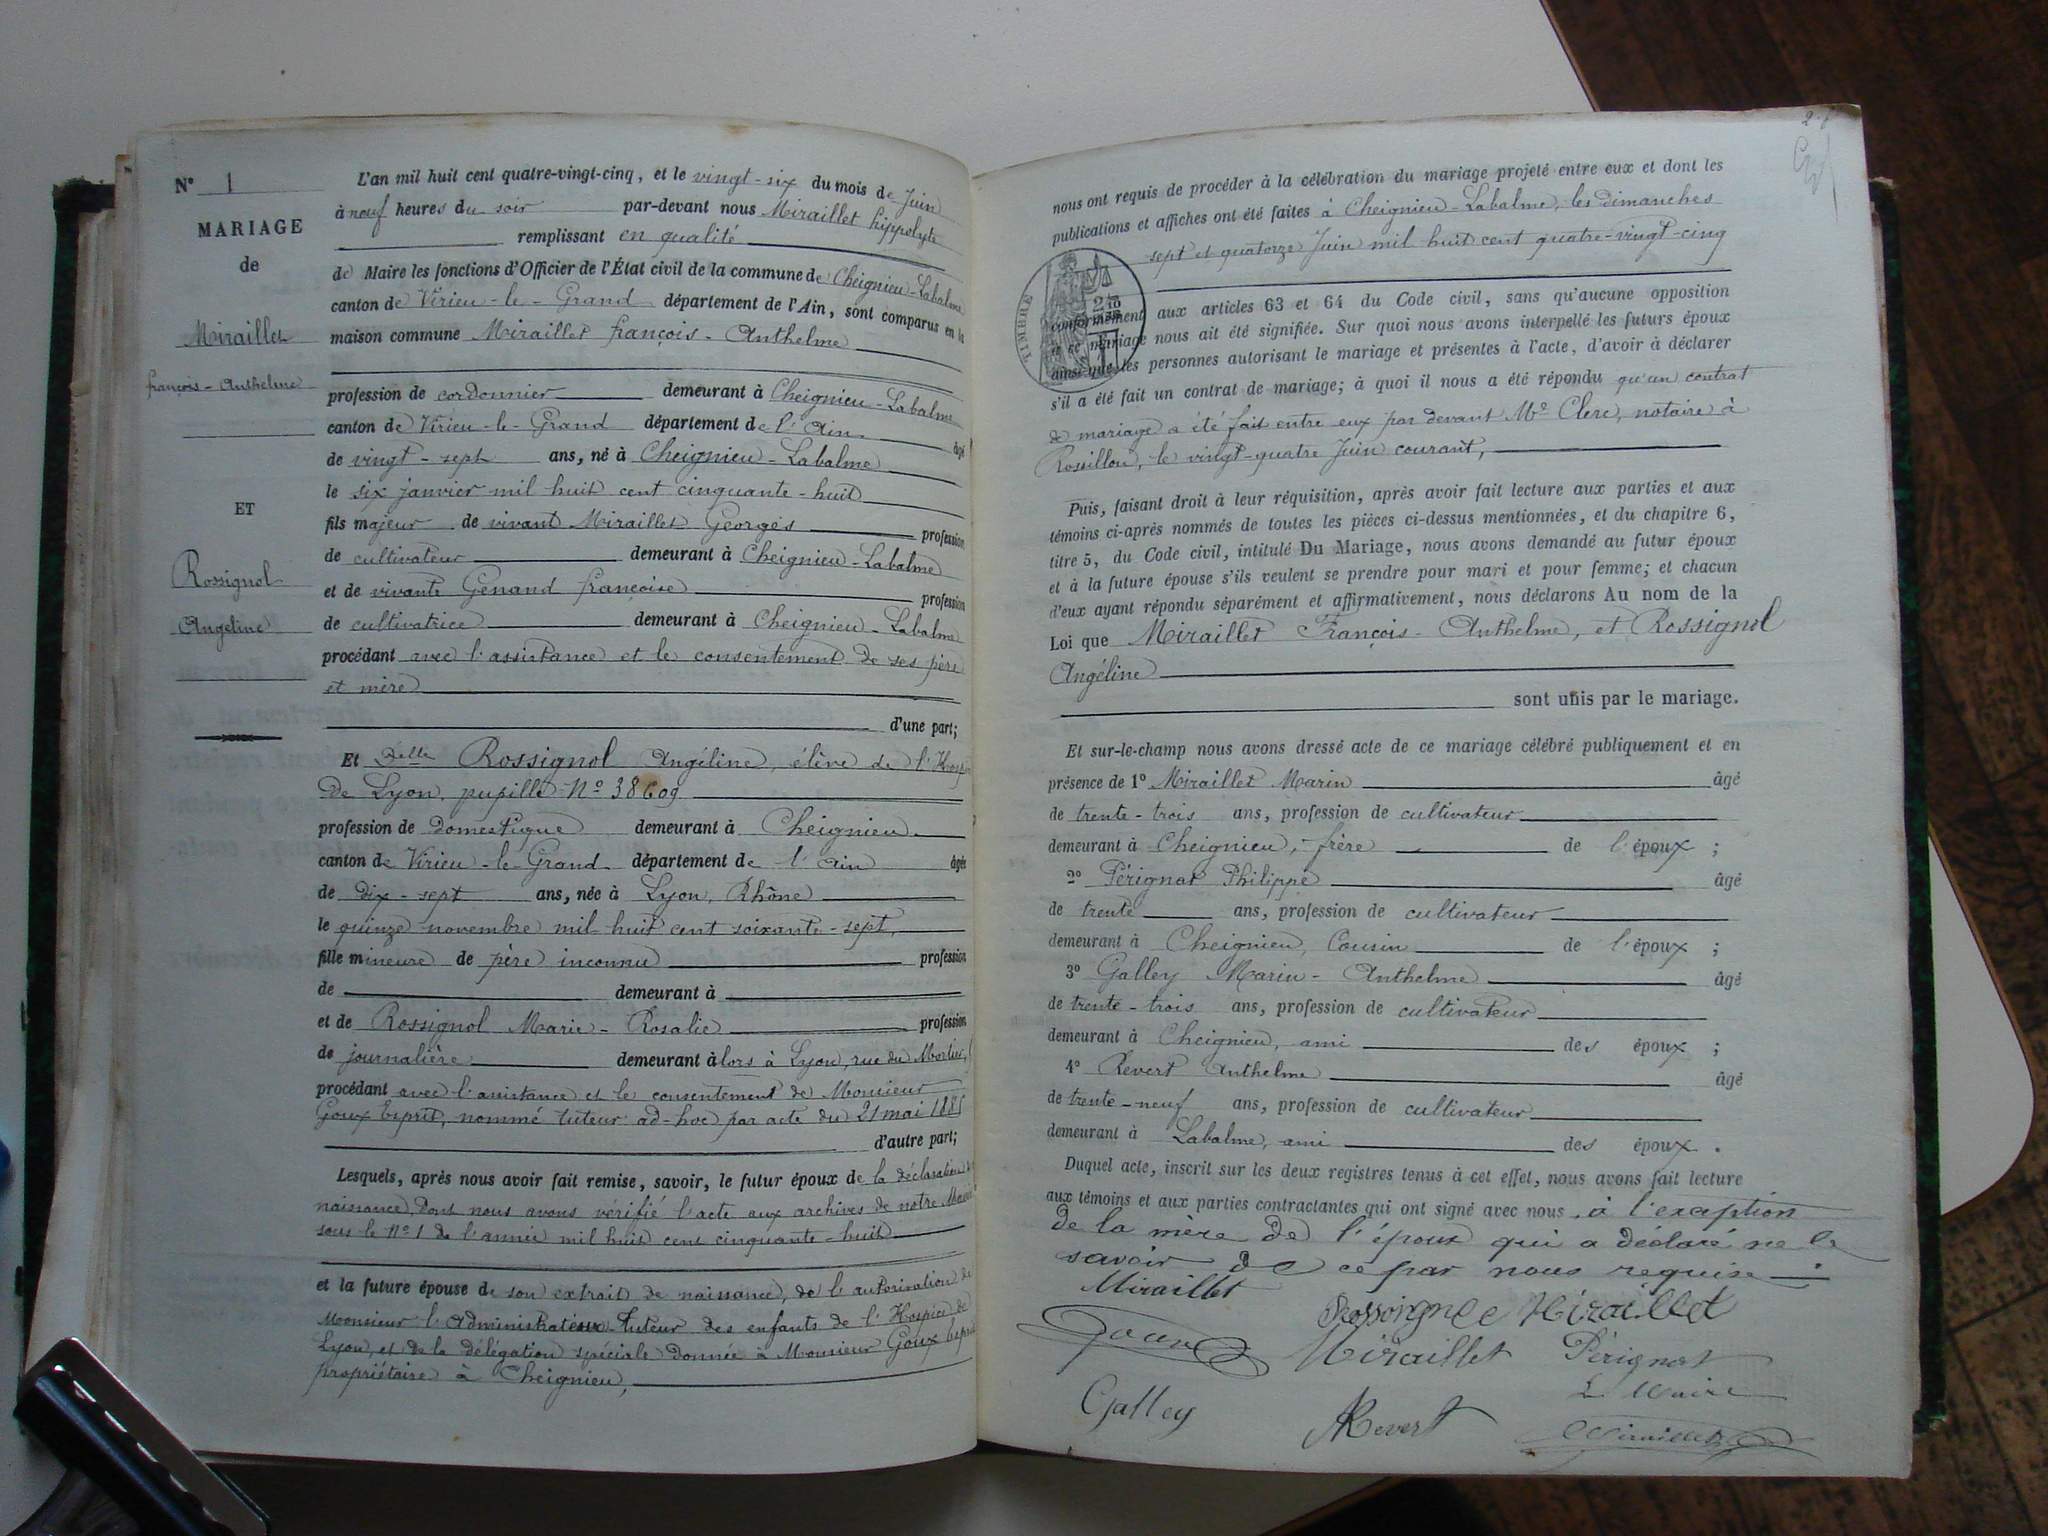 N° 1
MARIAGE
de
Miraillet
françois-Anthelme
ET
Rossignol
Angéline
L'an mil huit cent quatre-vingt-cinq, et le vingt-six du mois de Juin
à neuf heures du soir par-devant nous Miraillet hippolyte
remplissant en qualité
de Maire les fonctions d'Officier de l'État civil de la commune de Cheignieu-Labalme
canton de Virieu-le-Grand département de l'Ain, sont comparus en la
maison commune Miraillet françois-Anthelme
profession de cordonnier demeurant à Cheignieu-Labalme
canton de Virieu-le-Grand département de l'Ain âgé
de vingt-sept ans, né à Cheignieu-Labalme
le six janvier mil huit cent cinquante-huit
fils majeur de vivant Miraillet Georges profession
de cultivateur demeurant à Cheignieu-Labalme
et de vivante Genand françoise profession
de cultivatrice demeurant à Cheignieu-Labalme
procédant avec l'assistance et le consentement de ses père
et mère
d'une part;
Et Delle Rossignol Angéline, élève de l'Hosp
de Lyon, pupille N° 38609
profession de domestique demeurant à Cheignieu
canton de Virieu-le-Grand département de l'Ain âgée
de dix-sept ans, née à Lyon, Rhône
le quinze novembre mil huit cent soixante-sept,
fille mineure de père inconnu profession
de demeurant à
et de Rossignol Marie-Rosalie profession
de journalière demeurant à lors à Lyon, rue du
procédant avec l'assistance et le consentement de Monsieur
Goux Esprit, nommé tuteur ad-hoc par acte du 21 mai 1885
d'autre part;
Lesquels, après nous avoir fait remise, savoir, le futur époux de la déclaration
naissance, dont nous avons vérifié l'acte aux archives de notre
sous le N° 1 de l'année mil huit cent cinquante-huit
et la future épouse de son extrait de naissance, de l'autorisation de
Monsieur l'Administrateur-Tuteur des enfants de l'Hospice de
Lyon, et de la délégation spéciale donnée à Monsieur Goux Esprit
propriétaire à Cheignieu,
nous ont requis de procéder à la célébration du mariage projeté entre eux et dont les
publications et affiches ont été faites à Cheignieu-Labalme, les dimanches
sept et quatorze Juin mil huit cent quatre-vingt-cinq
TIMBRE
conformément aux articles 63 et 64 du Code civil, sans qu'aucune opposition
à ce mariage nous ait été signifiée. Sur quoi nous avons interpellé les futurs époux
ainsi que les personnes autorisant le mariage et présentes à l'acte, d'avoir à déclarer
s'il a été fait un contrat de mariage; à quoi il nous a été répondu qu'un contrat
de mariage a été fait entre eux par devant Me Clerc, notaire à
Rossillon, le vingt-quatre Juin courant,
Puis, faisant droit à leur réquisition, après avoir fait lecture aux parties et aux
témoins ci-après nommés de toutes les pièces ci-dessus mentionnées, et du chapitre 6,
titre 5, du Code civil, intitulé Du Mariage, nous avons demandé au futur époux
et à la future épouse s'ils veulent se prendre pour mari et pour femme; et chacun
d'eux ayant répondu séparément et affirmativement, nous déclarons Au nom de la
Loi que Miraillet François-Anthelme, et Rossignol
Angéline
sont unis par le mariage.
Et sur-le-champ nous avons dressé acte de ce mariage célébré publiquement et en
présence de 1° Miraillet Marin âgé
de trente-trois ans, profession de cultivateur
demeurant à Cheignieu, frère de l'époux ;
2° Pérignat Philippe âgé
de trente ans, profession de cultivateur
demeurant à Cheignieu, Cousin de l'époux ;
3° Galley Marin-Anthelme âgé
de trente-trois ans, profession de cultivateur
demeurant à Cheignieu, ami des époux ;
4° Revert Anthelme âgé
de trente-neuf ans, profession de cultivateur
demeurant à Labalme, ami des époux.
Duquel acte, inscrit sur les deux registres tenus à cet effet, nous avons fait lecture
aux témoins et aux parties contractantes qui ont signé avec nous, à l'exception
de la mère de l'époux qui a déclaré ne le
savoir de ce par nous requise
Miraillet Rossoignole Miraillet
Goux Miraillet Pérignat
Le Maire
Galley ARevert Miraillet